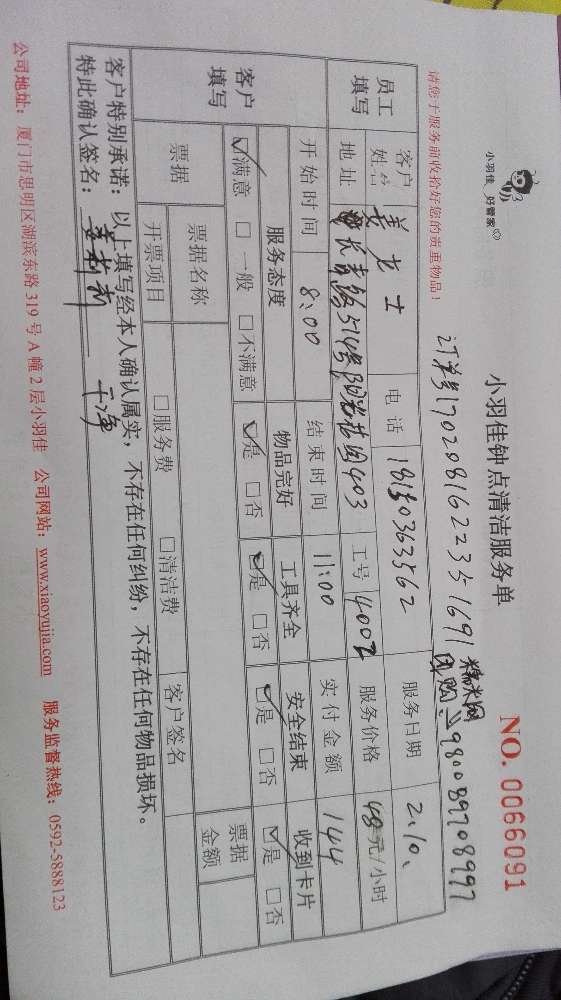 小羽佳 好管家
小羽佳钟点清洁服务单
NO. 0066091
请您于服务前收拾好您的贵重物品！
订单号1702081622351691 糯米网
团购：980089708997
员工填写 客户姓名 姜女士 电话 18150363562 服务日期 2.10.
地址 长青路514号403 工号 4002 服务价格 48元/小时
开始时间 8:00 结束时间 11:00 实付金额 144
客户填写 服务态度 物品完好 工具齐全 安全结束 收到卡片
☑满意 □一般 □不满意 ☑是 □否 ☑是 □否 ☑是 □否 ☑是 □否
票据 票据名称 票据金额
开票项目 □服务费 □清洁费 客户签名
客户特别承诺：以上填写经本人确认属实，不存在任何纠纷，不存在任何物品损坏。
特此确认签名： 干净
公司地址：厦门市思明区湖滨东路319号A幢2层小羽佳 公司网站：www.xiaoyujia.com 服务监督热线：0592-5888123